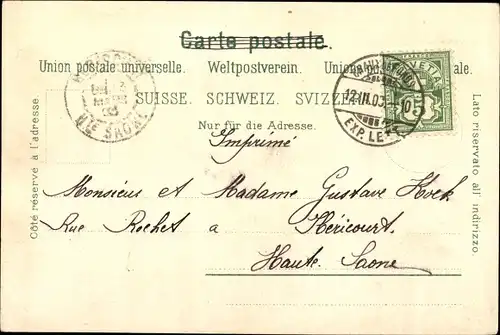 Carte postale.
Union postale universelle. Weltpostverein. Unione postale.
SUISSE. SCHWEIZ. SVIZZERA.
Nur für die Adresse.
Côté réservé à l'adresse
Lato riservato all' indirizzo.
HELVETIA
12.III.03
EXP. LETT.
HTE SAÔNE
Imprimé
Monsieur et Madame Gustave
Rue Rochet a Héricourt.
Haute. Saone